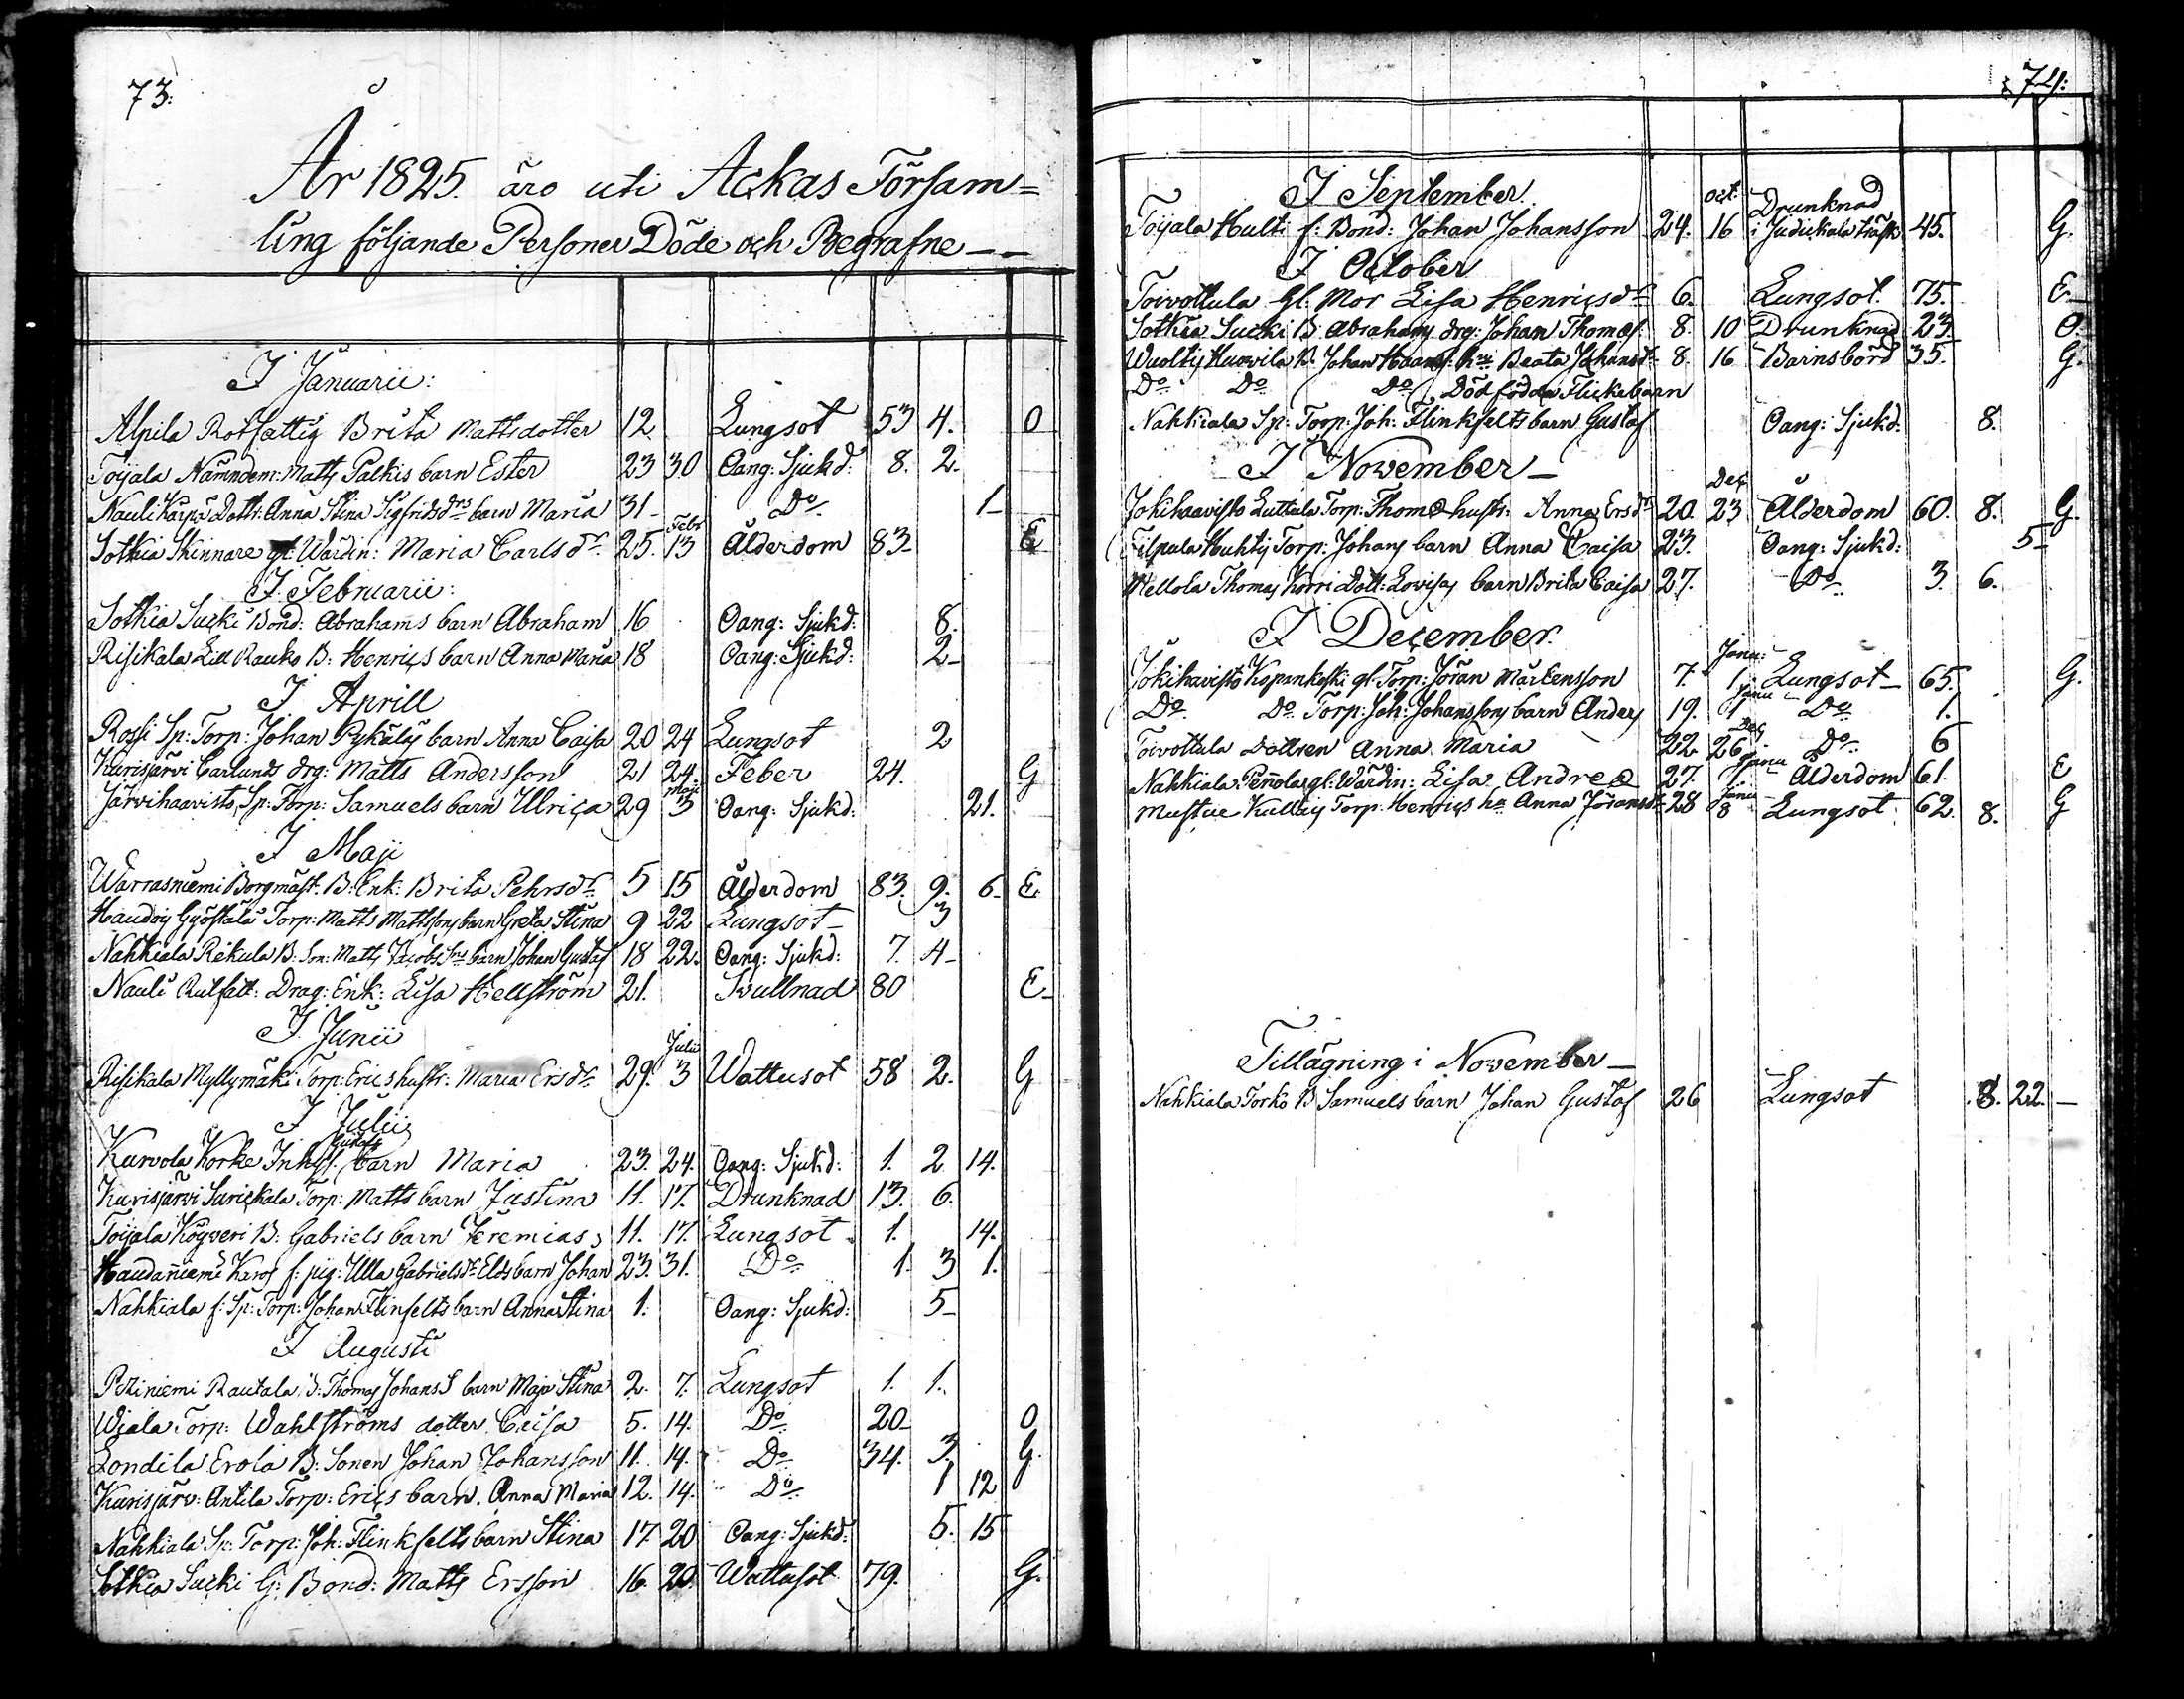 73:
År 1825. äro uti Ackas Församling
ling följande Personer Döde och Begrafne
I Januarii:
Alpila Rotfattig Brita Mattsdotter 12 Lungsot 53 4. O
Toijala Nämndem: Matts Palkis barn Ester 23 30 Oang: Sjukd: 8. 2.
Nauli Karpis Dottr: Anna Stina Sigfridsdrs barn Maria 31 Do 1
Sotkia Skinnare gl: Wärdin: Maria Carls dr 25. Febr 13 Ålderdom 83 E
I Februarii:
Sotkia Sucki Bond: Abrahams barn Abraham 16 Oang: Sjukd: 8.
Risikala Lill Rauko B: Henrics barn Anna Maria 18 Oang: Sjukd: 2
I Aprill
Rossi Sp: Torp: Johan Pykälis barn Anna Caisa 20 24 Lungsot 2
Kurisjärvi Carlunds drg: Matts Andersson 21 24. Feber 24. G
Järvihaavisto Sp: Torp: Samuels barn Ulrica 29 Maji 3 Oang: Sjukd: 21.
I Maji
Warrasniemi Borgmäst. B: Enk: Brita Pehrsdr 5 15 Ålderdom 83. 9. 6 E
Haudois Gyöstälä Torp: Matts Mattssons barn Greta Stina 9 22 Lungsot 3
Nahkiala Rekula B: Son: Matts Jacobs Sns barn Johan Gustaf 18 22. Oang: Sjukd: 7. 4
Nauli Rutfatt: Drag: Enk: Lisa Hellström 21. Svullnad 80 E
I Junii
Risikala Myllymäki Torp: Erics hustr: Maria Ersdr 29. Julii 3 Wattusot 58 2. G
I Julii
Kurvola Korke Inhys: Gustafs barn Maria 23. 24. Oang: Sjukd: 1. 2 14.
Kurisjärvi Surickala Torp: Matts barn Justina 11. 17. Drunknad 13. 6.
Toijala Köyveri B: Gabriels barn Jeremias 11. 17. Lungsot 1. 14.
Haudaniemi Karos f: pig: Ulla Gabrielsdr Elds barn Johan 23. 31. Do 1 3 1.
Nahkiala f: Sp: Torp: Johan Flinfelts barn Anna Stina 1. Oang: Sjukd: 5
I Augusti
Rautala B: Thomas Johans S barn Maja Stina 2. 7. Lungsot 1. 1.
Wiala Torp: Wahlströms dotter Caisa 5. 14. Do 20 O
Londila Erola B: Sonen Johan Johansson 11. 14. Do 34. 3. G.
Kurisjärv: Antila Torp: Erics barn Anna Maria 12. 14. Do 1 12
Nahkiala Sp: Torp: Joh: Flinkfelts barn Stina 17. 20 Oang: Sjukd: 5. 15
Sotkia Sucki G: Bond: Matts Ersson 16. 20. Wattusot 79. G.
74:
I September
Toijala Hulti f: Bond: Johan Johansson 24. Oct: 16 Drunknad i Judickala träsk 45. G.
I October
Toivottula Gl: Mor Lisa Henricsdr 6. Lungsot. 75. E
Sotkia Sucki B Abrahams drg: Johan Thomas: 8. 10 Drunknad 23. O.
Wuoltis Huovila B. Johan hu: Beata Johansdr 8. 16 Barnsbörd 35. G.
Do Do Do Dödfödda Flickebarn
Nahkiala Sp: Torp: Joh: Flinkfelts barn Gustaf Oang: Sjukd: 8.
I November
Jokihaavisto Luttala Torp: Thomæ hustr: Anna Ersdr 20. Dec 23 Ålderdom 60. 8. G.
Tilpala Huhtis Torp: Johans barn Anna Caisa 23. Oang: Sjukd: 5
Mellola Thomas Korri Dott: Lovisas barn Brita Caisa 27. Do 3. 6.
I December
Jokihavisto Kopankoski gl: Torp: Jöran Mårtensson 7. Janu: 1. Lungsot 65. G.
Do Do Torp: Joh: Johanssons barn Anders 19. Janu 1 Do 1.
Toivottula Dottren Anna Maria 22 Dec 26 Do 6
Nahkiala Pennola gl: Wärdin: Lisa Andreæ 27. Janu 1. Ålderdom 61. E
Mustue Kullais Torp: Henrics hu Anna Jöransdr 28 Janu 8 Lungsot 62. 8. G
Tillägning i November
Nahkiala Torko B Samuels barn Johan Gustaf 26 Lungsot 8. 22.